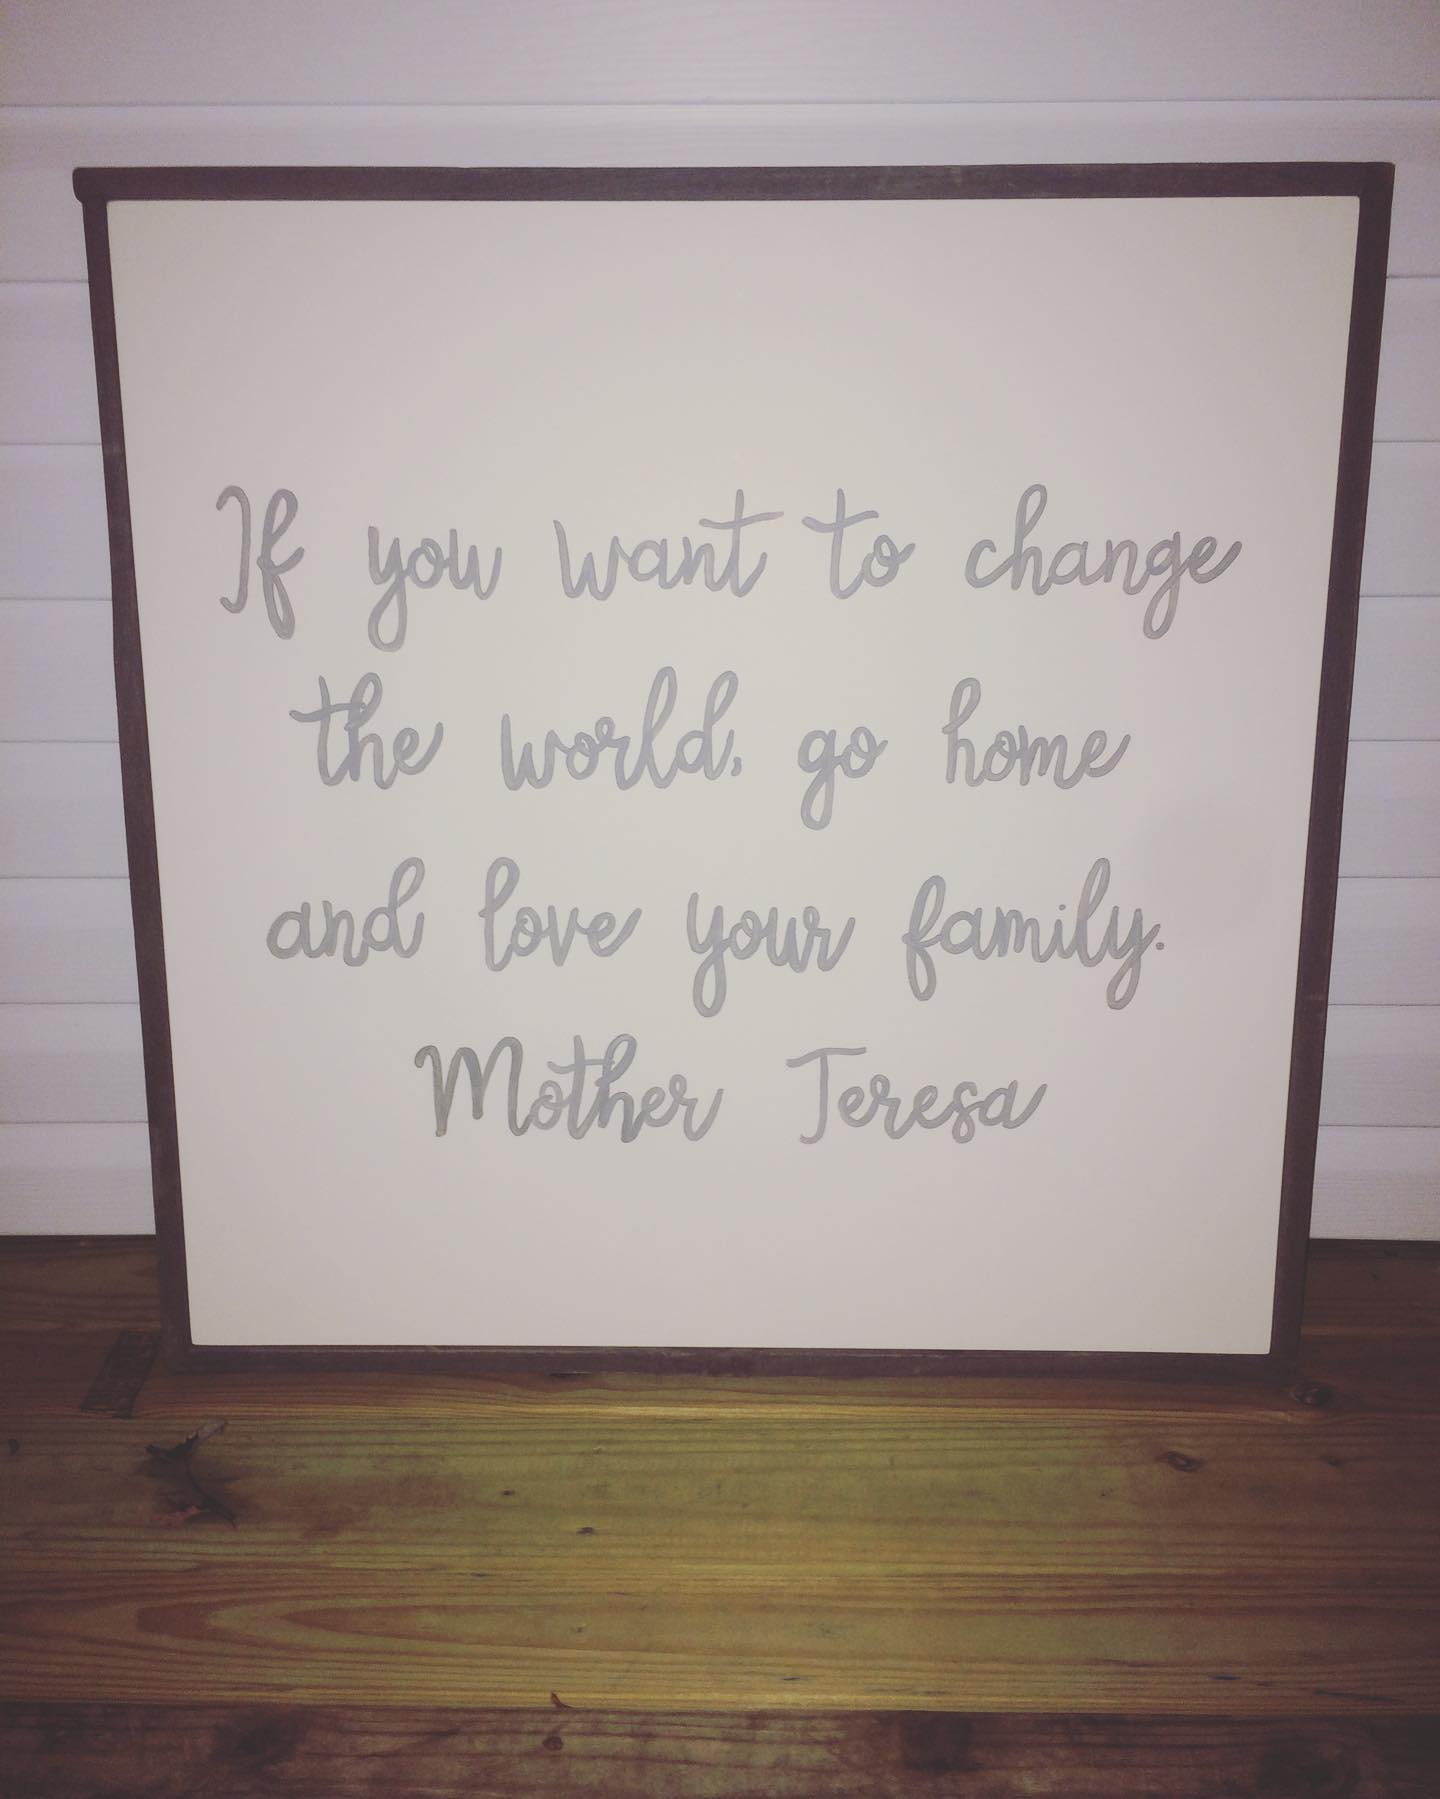 If you want to change
the world, go home
and love your family.
Mother Teresa